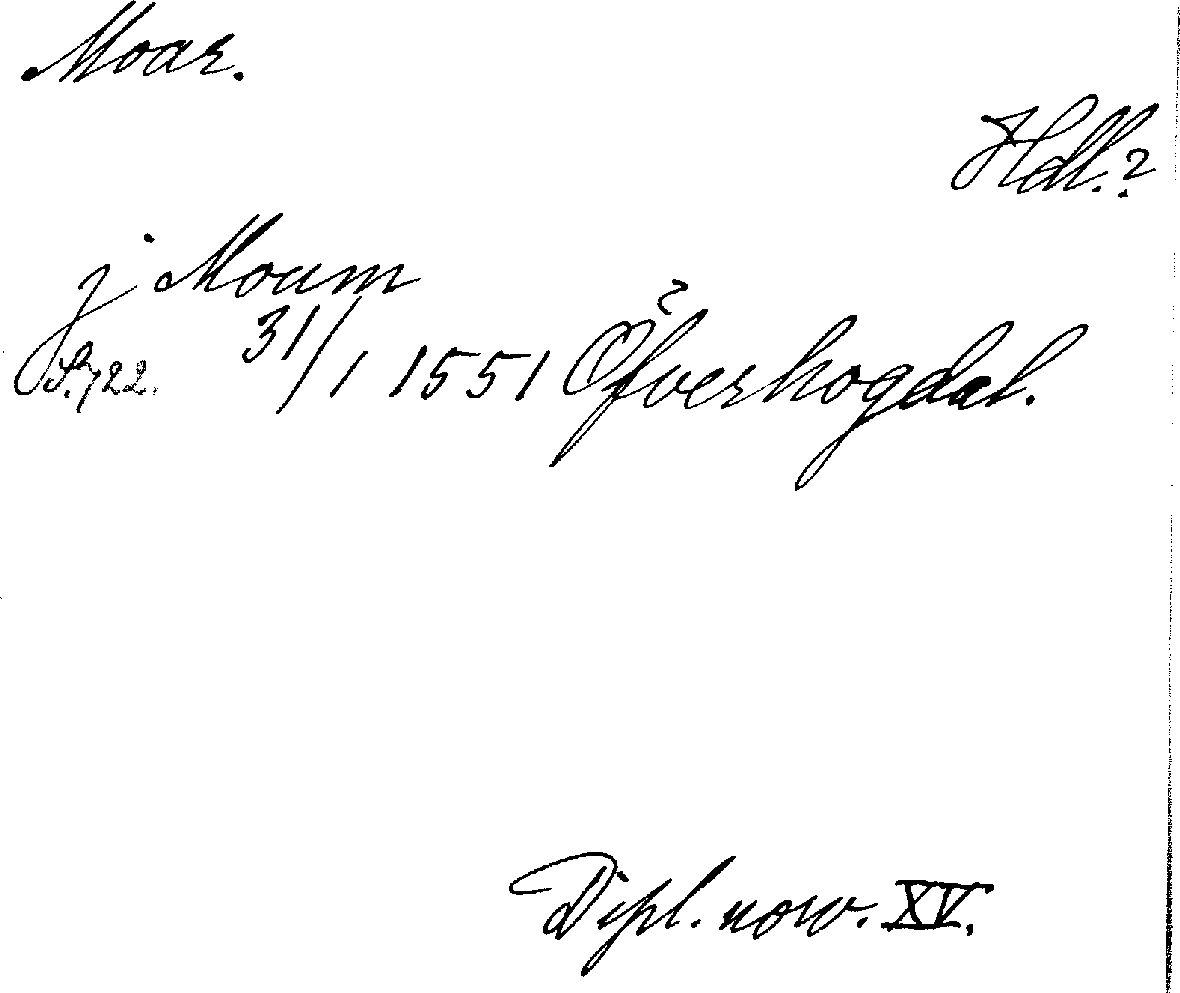 Moar.
Hdl.?
j Moum
S. 722. 31/1 1551 Öfverhogdal.
Dipl. norv. XV.